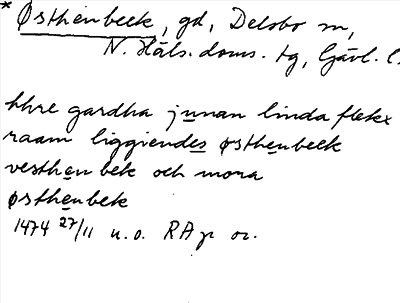 * Østhenbeck, gd, Delsbo sn,
N. Häls. doms. tg, Gävl. l.
thre gardha jnnan linda flekx
raam liggiendes østhenbeck
vesthan bek och mora
østhenbek
1474 27/11 u.o. RAp or.